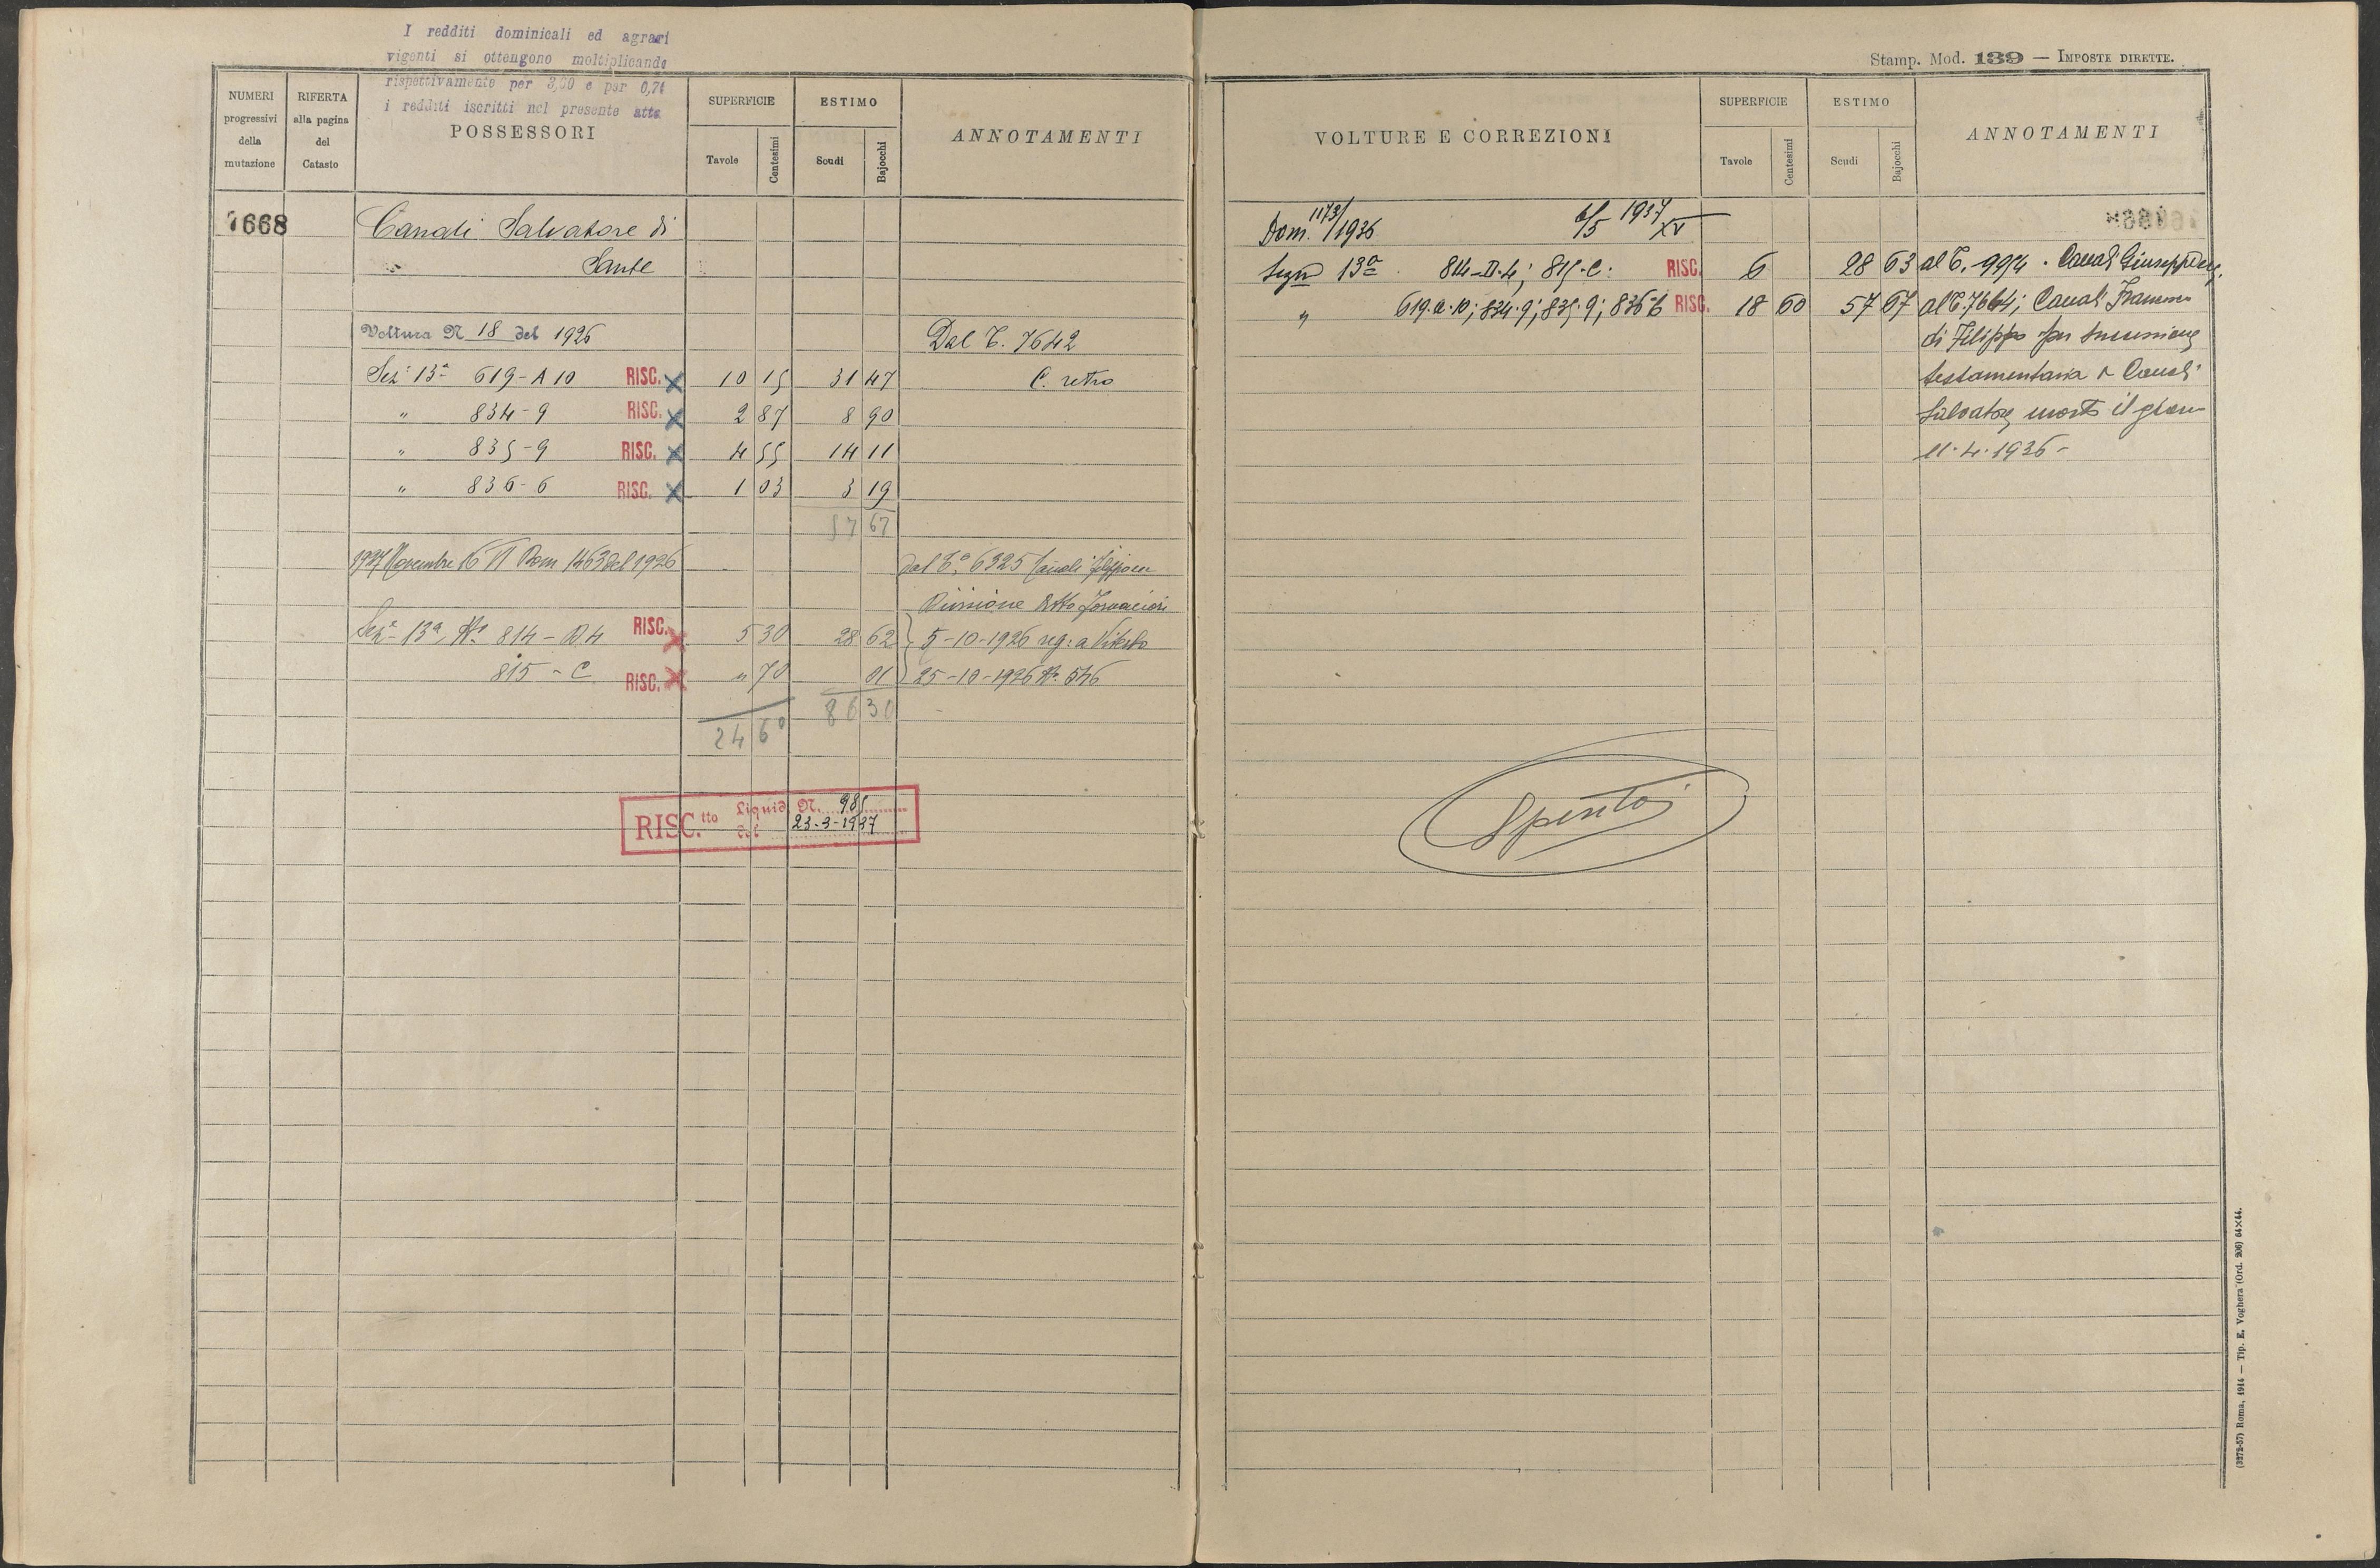 I redditi dominicali ed agrari
vigenti si ottengono moltiplicando
rispettivamente per 3,00 e per 0,74
i redditi iscritti nel presente atto
NUMERI progressivi della mutazione
RIFERTA alla pagina del Catasto
POSSESSORI
SUPERFICIE
Tavole Centesimi
ESTIMO
Scudi Bajocchi
ANNOTAMENTI
7668 Canali Salvatore di
Sante
Voltura N 18 del 1926 Dal T. 7642
Sez. 13ª 619-A10 RISC. X 10 15 31 47 C. retro
" 834-9 RISC. X 2 87 8 90
" 835-9 RISC. X 4 55 14 11
" 836-6 RISC. X 1 03 3 19
57 67
1927 Novembre 16 VI Dom 1463 del 1926 dal T.º 6325 Canali Filippo
Divisione Atto Fornaciari
Sez. 13ª, Nº 814-D4 RISC. X 5 30 28 62 5-10-1926 reg: a Viterbo
815-C RISC. X " 70 01 25-10-1926 Nº 546
24 60 86 30
RISC.tto Liquid. N. 985
del 23-3-1927
Stamp. Mod. 139 — IMPOSTE DIRETTE.
VOLTURE E CORREZIONI
SUPERFICIE
Tavole Centesimi
ESTIMO
Scudi Bajocchi
ANNOTAMENTI
Dom. 1173/1936 6/5 1937 XV
Sezne 13ª 814-D.4; 815.C. RISC. 6 28 63 al T. 9974. Canali Giuseppe
" 619.a.10; 834.9; 835.9; 836.6 RISC. 18 60 57 67 al T. 7664; Canali Francesco
di Filippo per successione
testamentaria di Canali
Salvatore morto il giorno
11.4.1936-
Spento
(3272-57) Roma, 1914 — Tip. E. Voghera (Ord. 206) 64×44.